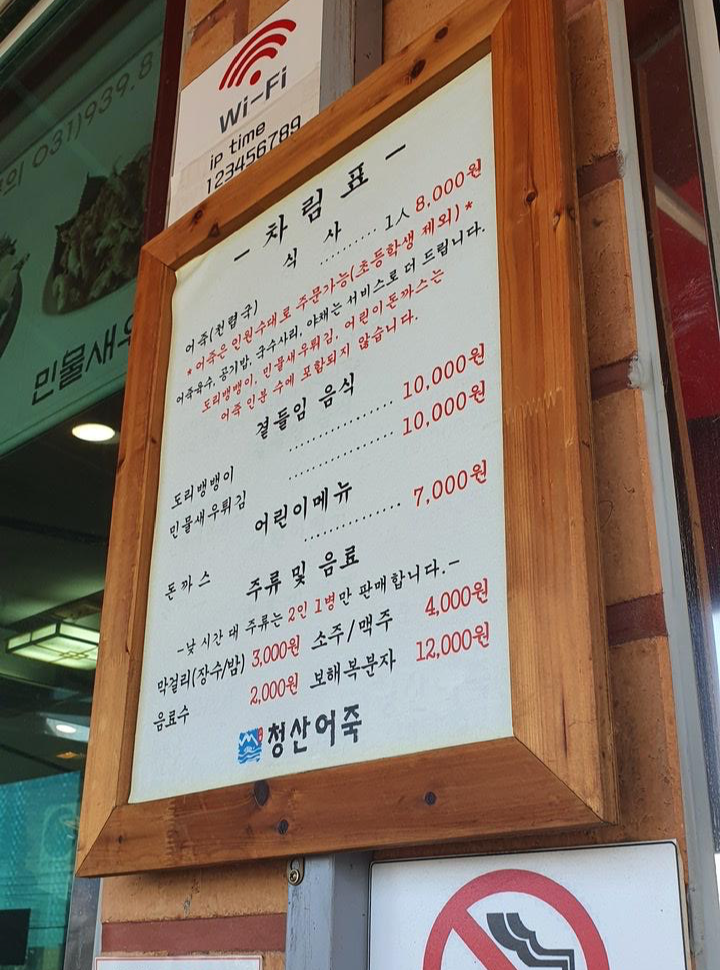 Wi-Fi
ip time
123456789
031)939.8
민물새우
- 차 림 표 -
식 사
어죽(천렵국) .......... 1人 8,000원
* 어죽은 인원수대로 주문가능(초등학생 제외) *
어죽육수, 공기밥, 국수사리, 야채는 서비스로 더 드립니다.
도리뱅뱅이, 민물새우튀김, 어린이돈까스는
어죽 인분 수에 포함되지 않습니다.
곁들임 음식
도리뱅뱅이 .................. 10,000원
민물새우튀김 .................. 10,000원
어린이메뉴
돈까스 ................ 7,000원
주류 및 음료
-낮 시간대 주류는 2인 1병만 판매합니다.-
막걸리(장수/밤) 3,000원 소주/맥주 4,000원
음료수 2,000원 보해복분자 12,000원
청산어죽